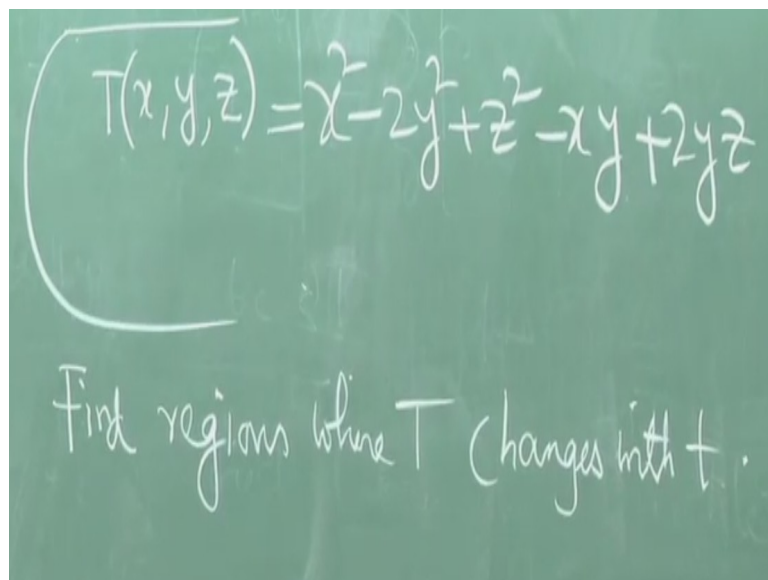 T(x,y,z) = x² - 2y² + z² - xy + 2yz
Find regions where T changes with t.